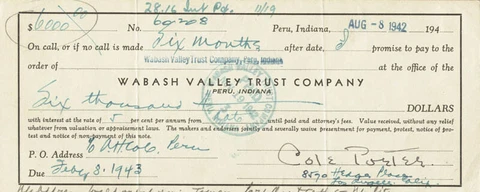 28.16 Int Pd. 11/19
$6000 00 No. 60208 Peru, Indiana, AUG - 8 1942 194
On call, or if no call is made Six Months after date, I promise to pay to the
Wabash Valley Trust Company, Peru, Indiana
order of at the office of the
WABASH VALLEY TRUST COMPANY
PERU, INDIANA
Six thousand DOLLARS
with interest at the rate of 5 per cent per annum until paid and attorney's fees. Value received, without any relief
whatever from valuation or appraisement laws. The makers and endorsers jointly and severally waive presentment for payment, protest, notice of pro-
test and notice of non-payment of this note.
P. O. Address Peru
Cole Porter
Due Feby 8, 1943
Los Angeles Calif